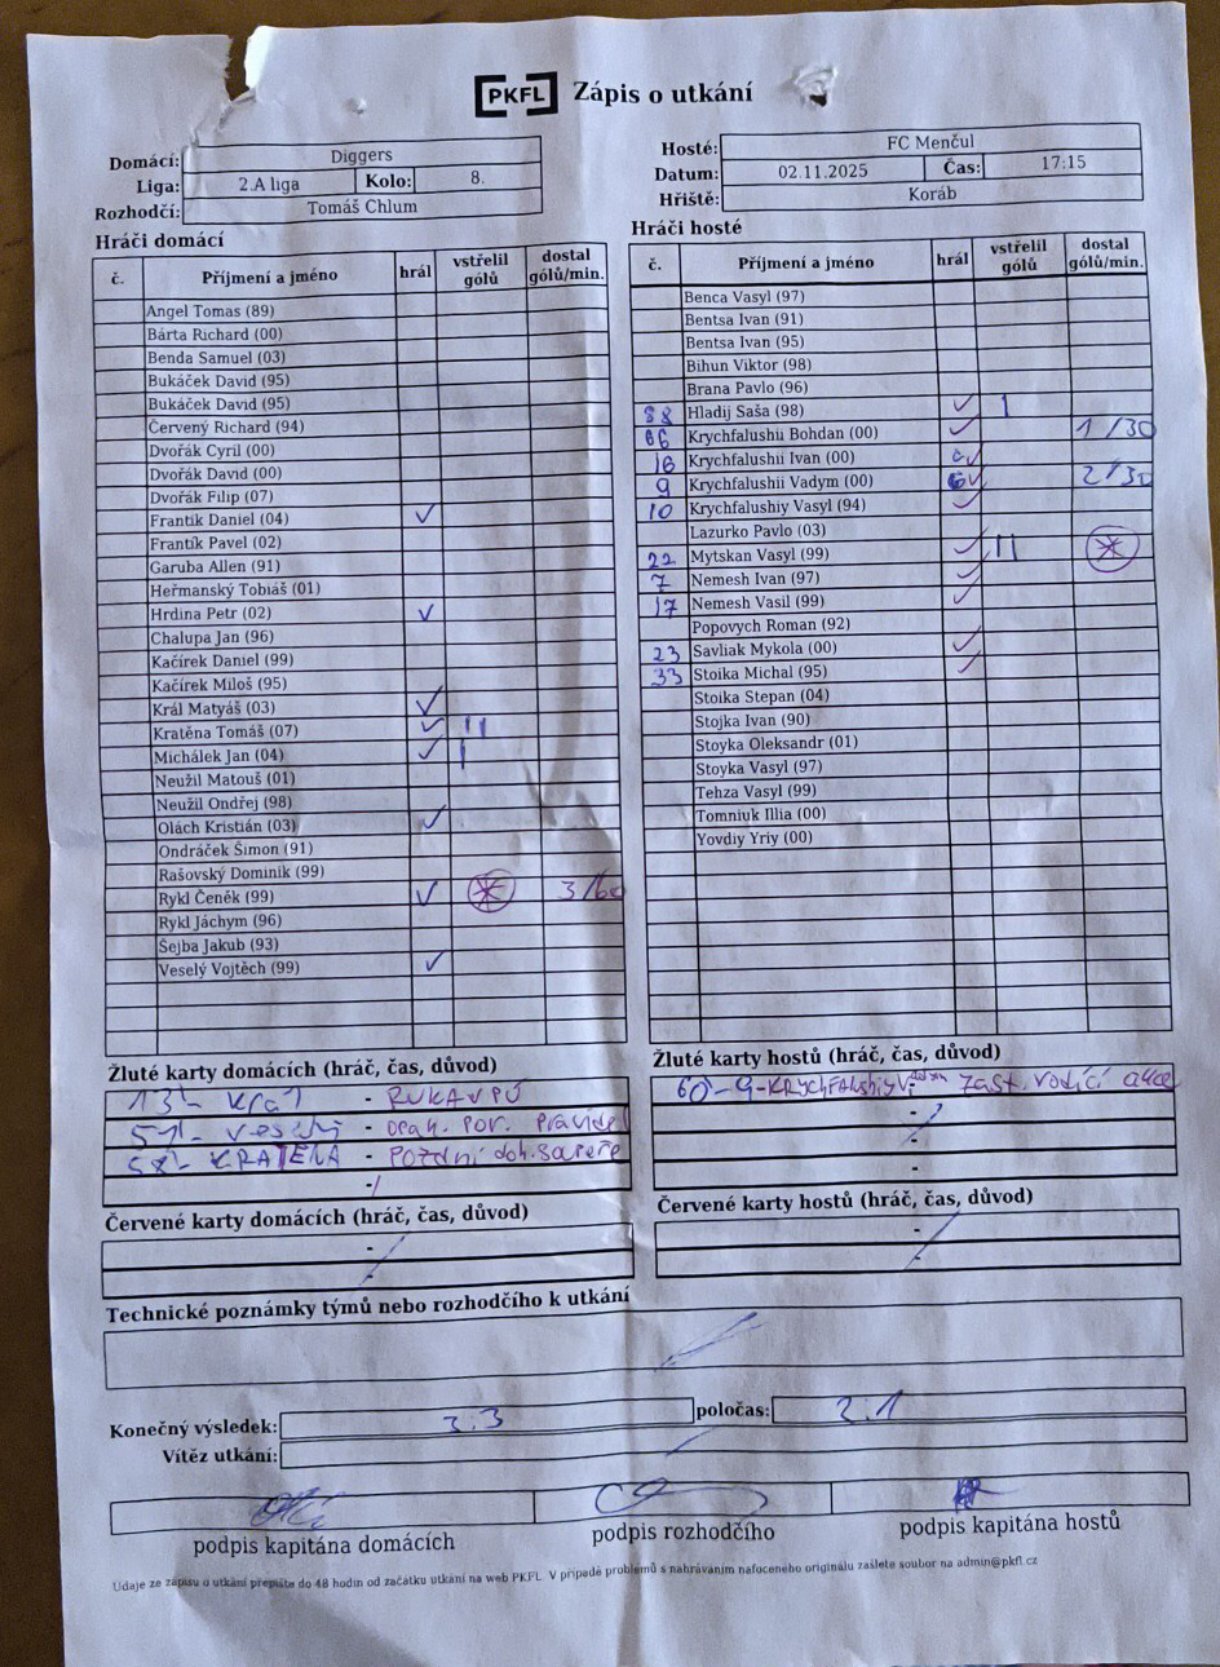 PKFL Zápis o utkání
Domácí: Diggers
Liga: 2.A liga Kolo: 8.
Rozhodčí: Tomáš Chlum
Hosté: FC Menčul
Datum: 02.11.2025 Čas: 17:15
Hřiště: Koráb
Hráči domácí
č. Příjmení a jméno hrál vstřelil gólů dostal gólů/min.
Angel Tomas (89)
Bárta Richard (00)
Benda Samuel (03)
Bukáček David (95)
Bukáček David (95)
Červený Richard (94)
Dvořák Cyril (00)
Dvořák David (00)
Dvořák Filip (07)
Frantík Daniel (04) ✓
Frantík Pavel (02)
Garuba Allen (91)
Heřmanský Tobiáš (01)
Hrdina Petr (02) ✓
Chalupa Jan (96)
Kačírek Daniel (99)
Kačírek Miloš (95)
Král Matyáš (03) ✓
Kratěna Tomáš (07) ✓ ||
Michálek Jan (04) ✓ |
Neužil Matouš (01)
Neužil Ondřej (98)
Olách Kristián (03) ✓
Ondráček Šimon (91)
Rašovský Dominik (99)
Rykl Čeněk (99) ✓ 3/60
Rykl Jáchym (96)
Šejba Jakub (93)
Veselý Vojtěch (99) ✓
Hráči hosté
č. Příjmení a jméno hrál vstřelil gólů dostal gólů/min.
Benca Vasyl (97)
Bentsa Ivan (91)
Bentsa Ivan (95)
Bihun Viktor (98)
Brana Pavlo (96)
88 Hladij Saša (98) ✓ |
66 Krychfalushii Bohdan (00) ✓ 1/30
16 Krychfalushii Ivan (00) ✓
9 Krychfalushii Vadym (00) ✓ 2/30
10 Krychfalushiy Vasyl (94) ✓
Lazurko Pavlo (03)
22 Mytskan Vasyl (99) ✓ ||
7 Nemesh Ivan (97) ✓
17 Nemesh Vasil (99) ✓
Popovych Roman (92)
23 Savliak Mykola (00) ✓
33 Stoika Michal (95) ✓
Stoika Stepan (04)
Stojka Ivan (90)
Stoyka Oleksandr (01)
Stoyka Vasyl (97)
Tehza Vasyl (99)
Tomniuk Illia (00)
Yovdiy Yriy (00)
Žluté karty domácích (hráč, čas, důvod)
13' - Král - RUKA V PÚ
51' - Veselý - opak. por. pravidel
58' - KRATĚNA - pozdní doh. soupeře
-
Žluté karty hostů (hráč, čas, důvod)
60' - 9 - KRYCHFALUSHIY Vadym zast. vodící akce
-
-
-
Červené karty domácích (hráč, čas, důvod)
-
-
Červené karty hostů (hráč, čas, důvod)
-
-
Technické poznámky týmů nebo rozhodčího k utkání
Konečný výsledek: 3:3 poločas: 2:1
Vítěz utkání:
podpis kapitána domácích podpis rozhodčího podpis kapitána hostů
Údaje ze zápisu o utkání přepište do 48 hodin od začátku utkání na web PKFL. V případě problémů s nahráváním nafoceného originálu zašlete soubor na admin@pkfl.cz